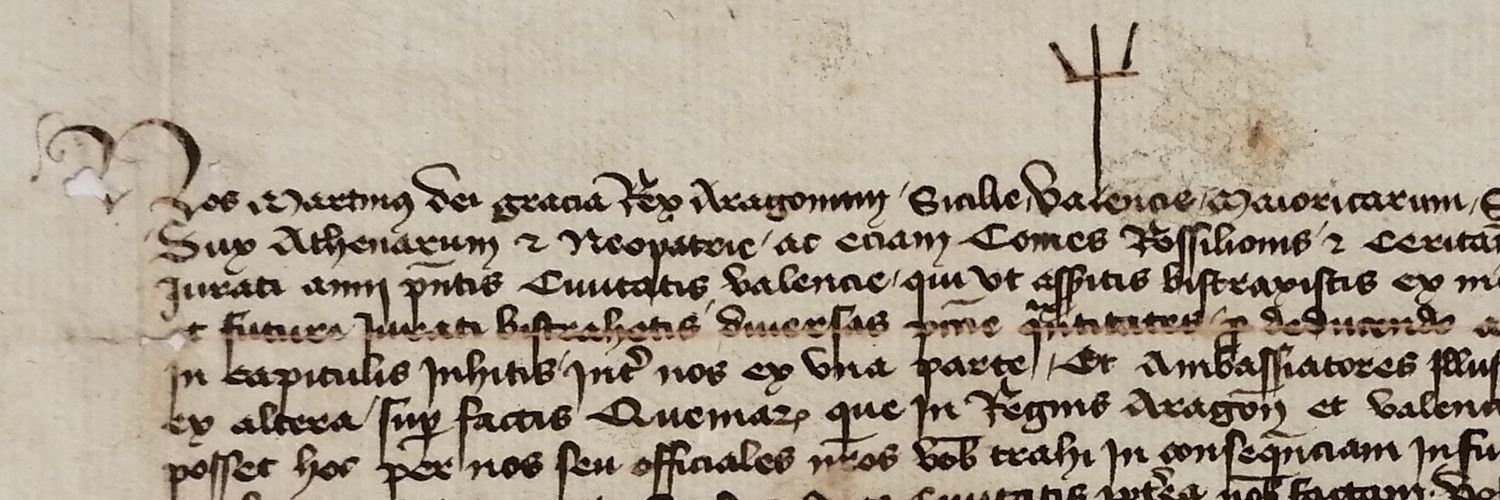 Nos Martinus dei gracia Rex Aragonum / Sicilie, Valencie / Maioricarum / S
Dux Athenarum ⁊ Neopatrie / ac eciam Comes Rossilionis ⁊ Ceritan
Jurati anni pñtis Ciuitatis Valencie / qui vt asseritis bistraxistis ex
et futuri Jurati bistrahetis diuersas pecunie quantitates / deducendo
in Capitulis Inhitis Inter nos ex vna parte / Et Ambassiatores Illus
ex altera / sup factis Quemaꝝ que In Regnis Aragon et Valenc
posset hoc per nos seu officiales nros vob trahi In consequenciam In fu
Ciuitatis factam